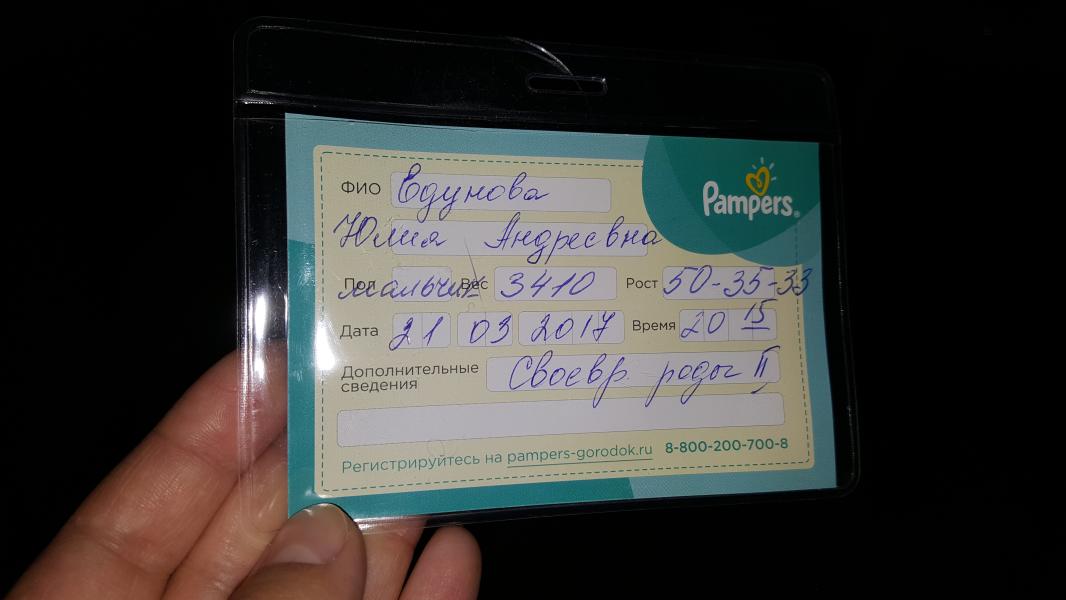 Pampers®
ФИО Едунова
Юлия Андреевна
Пол мальчик Вес 3410 Рост 50-35-33
Дата 21 03 2017 Время 20 15
Дополнительные сведения Своевр. роды II
Регистрируйтесь на pampers-gorodok.ru 8-800-200-700-8